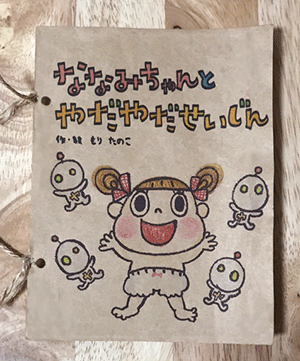 ななみちゃんと
やだやだせいじん
作・絵 もり たのこ